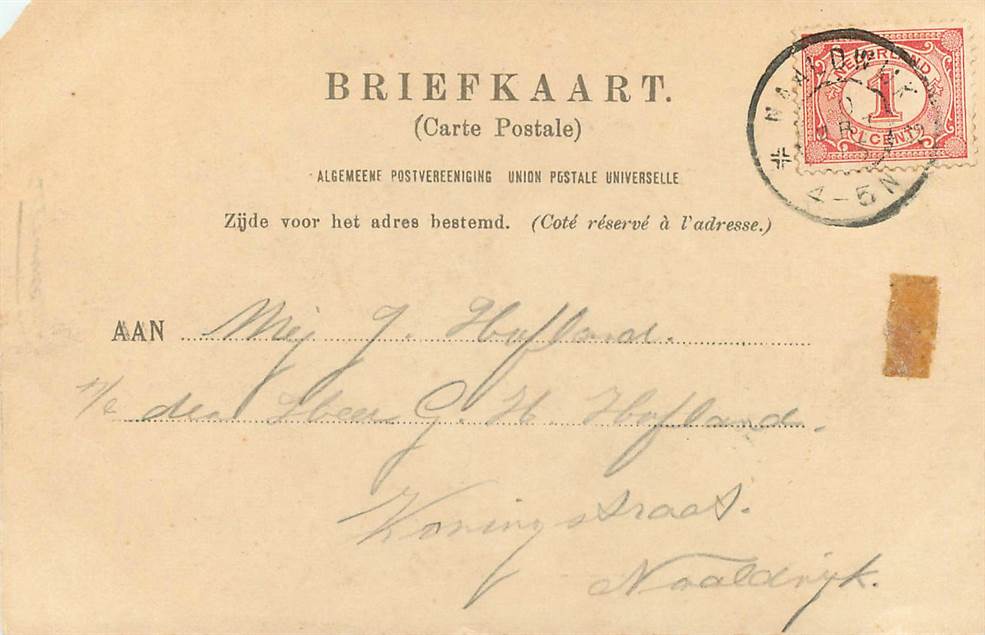 BRIEFKAART.
(Carte Postale)
ALGEMEENE POSTVEREENIGING UNION POSTALE UNIVERSELLE
Zijde voor het adres bestemd. (Coté réservé à l'adresse.)
NEDERLAND
1
CENT
NAALDWIJK
4-5N
AAN Mej J. Hofland.
p/a den Heer G. H. Hofland.
Koningstraat.
Naaldwyk.